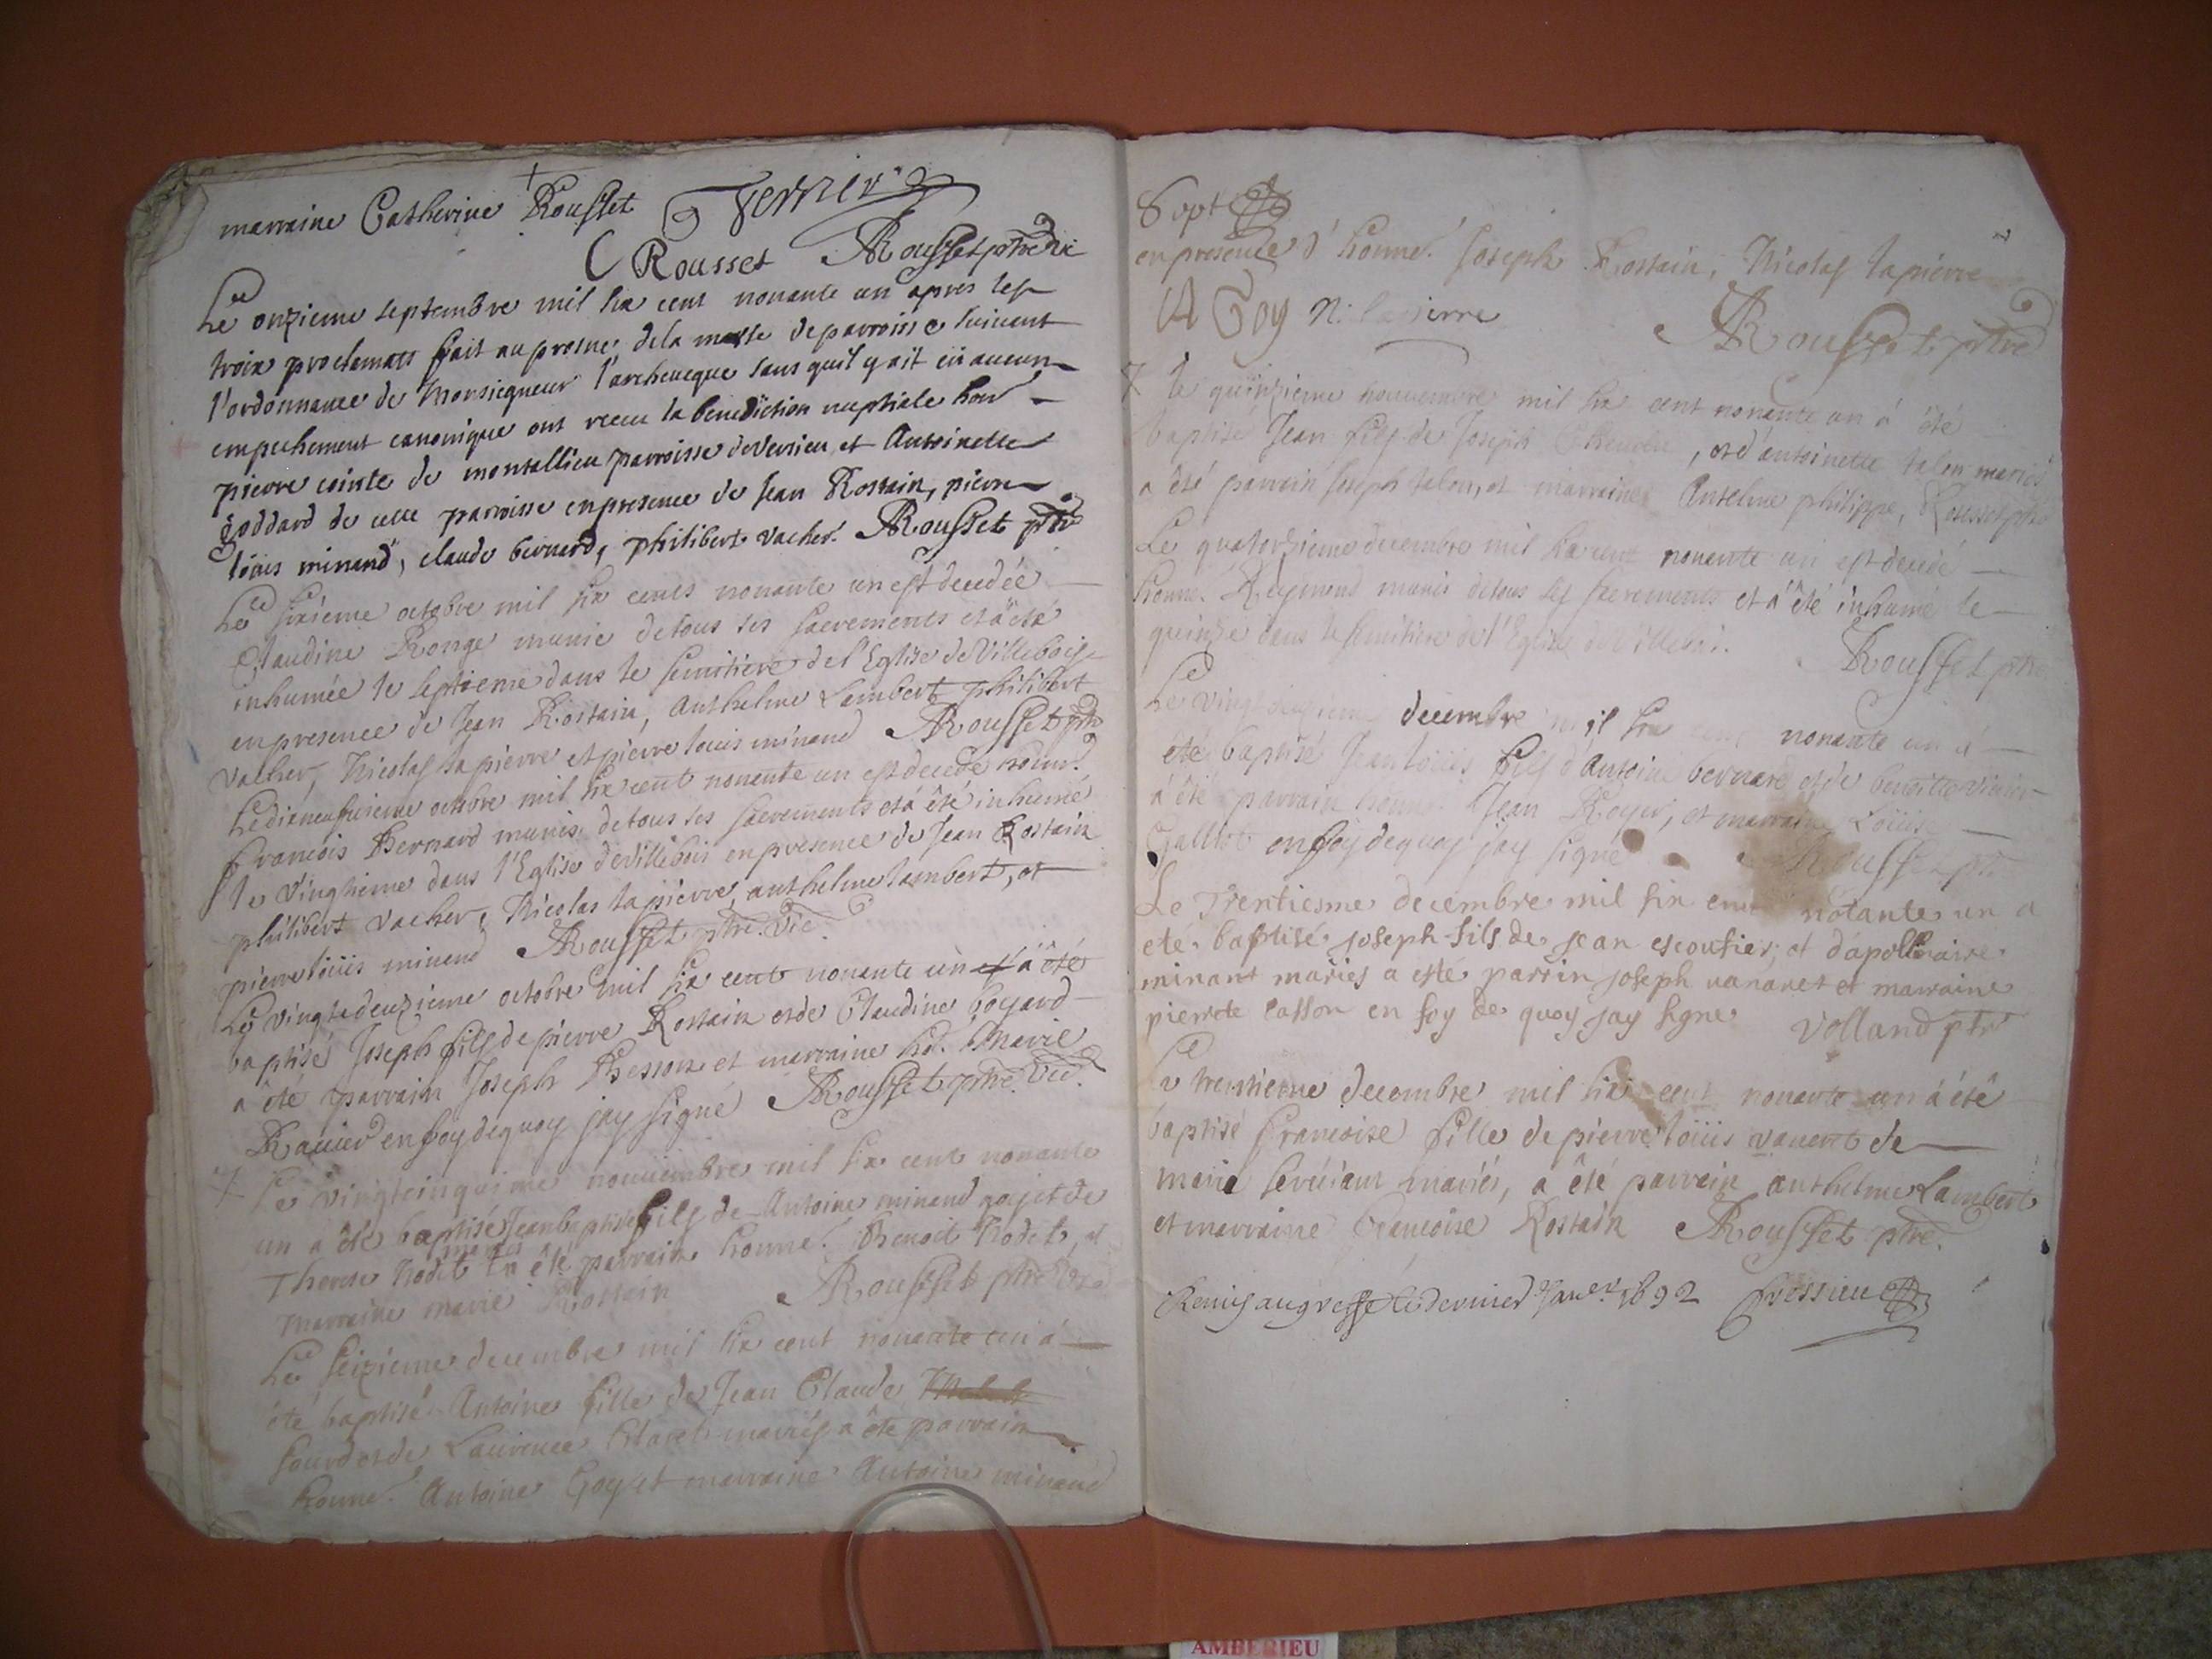 marraine Catherine Rousset
C Rousset Rousset ptre vic
Le onzieme septembre mil six cent nonante un apres les
trois proclamats fait au prosne de la messe de parroisse suivant
l'ordonnance de Monsiegneur l'archeueque sans quil y ait eü aucun
empechement canonique ont receu la benediction nuptiale hon
pierre cointe de montallieu parroisse de Verieu et Antoinette
Goddard de cette parroisse en presence de Jean Rostain, pierre
loüis minand, claude bernard, philibert vacher. Rousset ptre
Le sixieme octobre mil six cents nonante un est decedée
Claudine Ronge munie de tous ses sacrements et a été
inhumée le septieme dans le semitiere de l'Eglise de Villebois
en presence de Jean Rostain, Anthelme Lambert philibert
vacher, Nicolas lapierre et pierre louis minand Rousset ptre
Le dixneufvieme octobre mil six cent nonante un est decedé honn.
francois Bernard munis de tous ses sacrements et á été inhumé
le vinghieme dans l'Eglise de Villebois en presence de Jean Rostain
philibert vacher, Nicolas lapierre, anthelme lambert, et
pierre loüis minand Rousset ptre. vic
Le vingtedeuzieme octobre mil six cent nonante un á été
baptisé Joseph fils de pierre Rostain et de Claudine boyard
a été parrain Joseph Besson et marraine hon. Marie
Ravier en foy de quoy jay signé Rousset ptre. vic.
Le vingtcinquieme nouuembre mil six cent nonante
un a été baptisé Jean baptiste fils de Antoine minand goyet de
Therese Nodet mariés a été parrain honne. Benoit Nodet, et
marraine marie Rostain Rousset ptre vic
Le seizieme decembre mil six cent nonante un á
été baptisé Antoine fille de Jean Claude
sourd et de Laurence Claret mariés a été parrain
honne. Antoine Goy et marraine Antoine minand
Sept
en presence d'honne. Joseph Rostain, Nicolas lapierre
A Goy N. lapierre
Rousset ptre
le quinzieme nouuembre mil six cent nonante un á été
baptisé Jean fils de Joseph, et d'antoinette talon mariés
a été parrain Joseph talon, et marraine Anselme philippe, Rousset ptre
Le quatorzieme decembre mil six cent nonante un est decedé
honne. Reymond munis de tous ses sacrements et á été inhumé le
quinze dans le semitiere de l'Eglise de Villebois.
Rousset ptre
Le Vingt decembre mil six cent nonante un á
été baptisé Jean loüis fils d'Antoine bernard et de benoitte
á été parrain honne. Jean Royer, et marraine Loüise
Galliot en foy de quoy jay signé Rousset ptr
Le Trentiesme decembre mil six cent notante un a
eté baptisé joseph fils de jean escoufier, et d'apollinaire
minant mariés a esté parrin joseph vanaret et marraine
pierrete casson en foy de quoy jay signe Volland ptr
Le trentieme decembre mil six cent nonante un á été
baptisé francoise fille de pierre loüis vanert de
marie mariés, a été parrain anthelme Lambert
et marraine francoise Rostain Rousset ptre.
Remis au greffe le dernier Janer. 1692
AMBERIEU